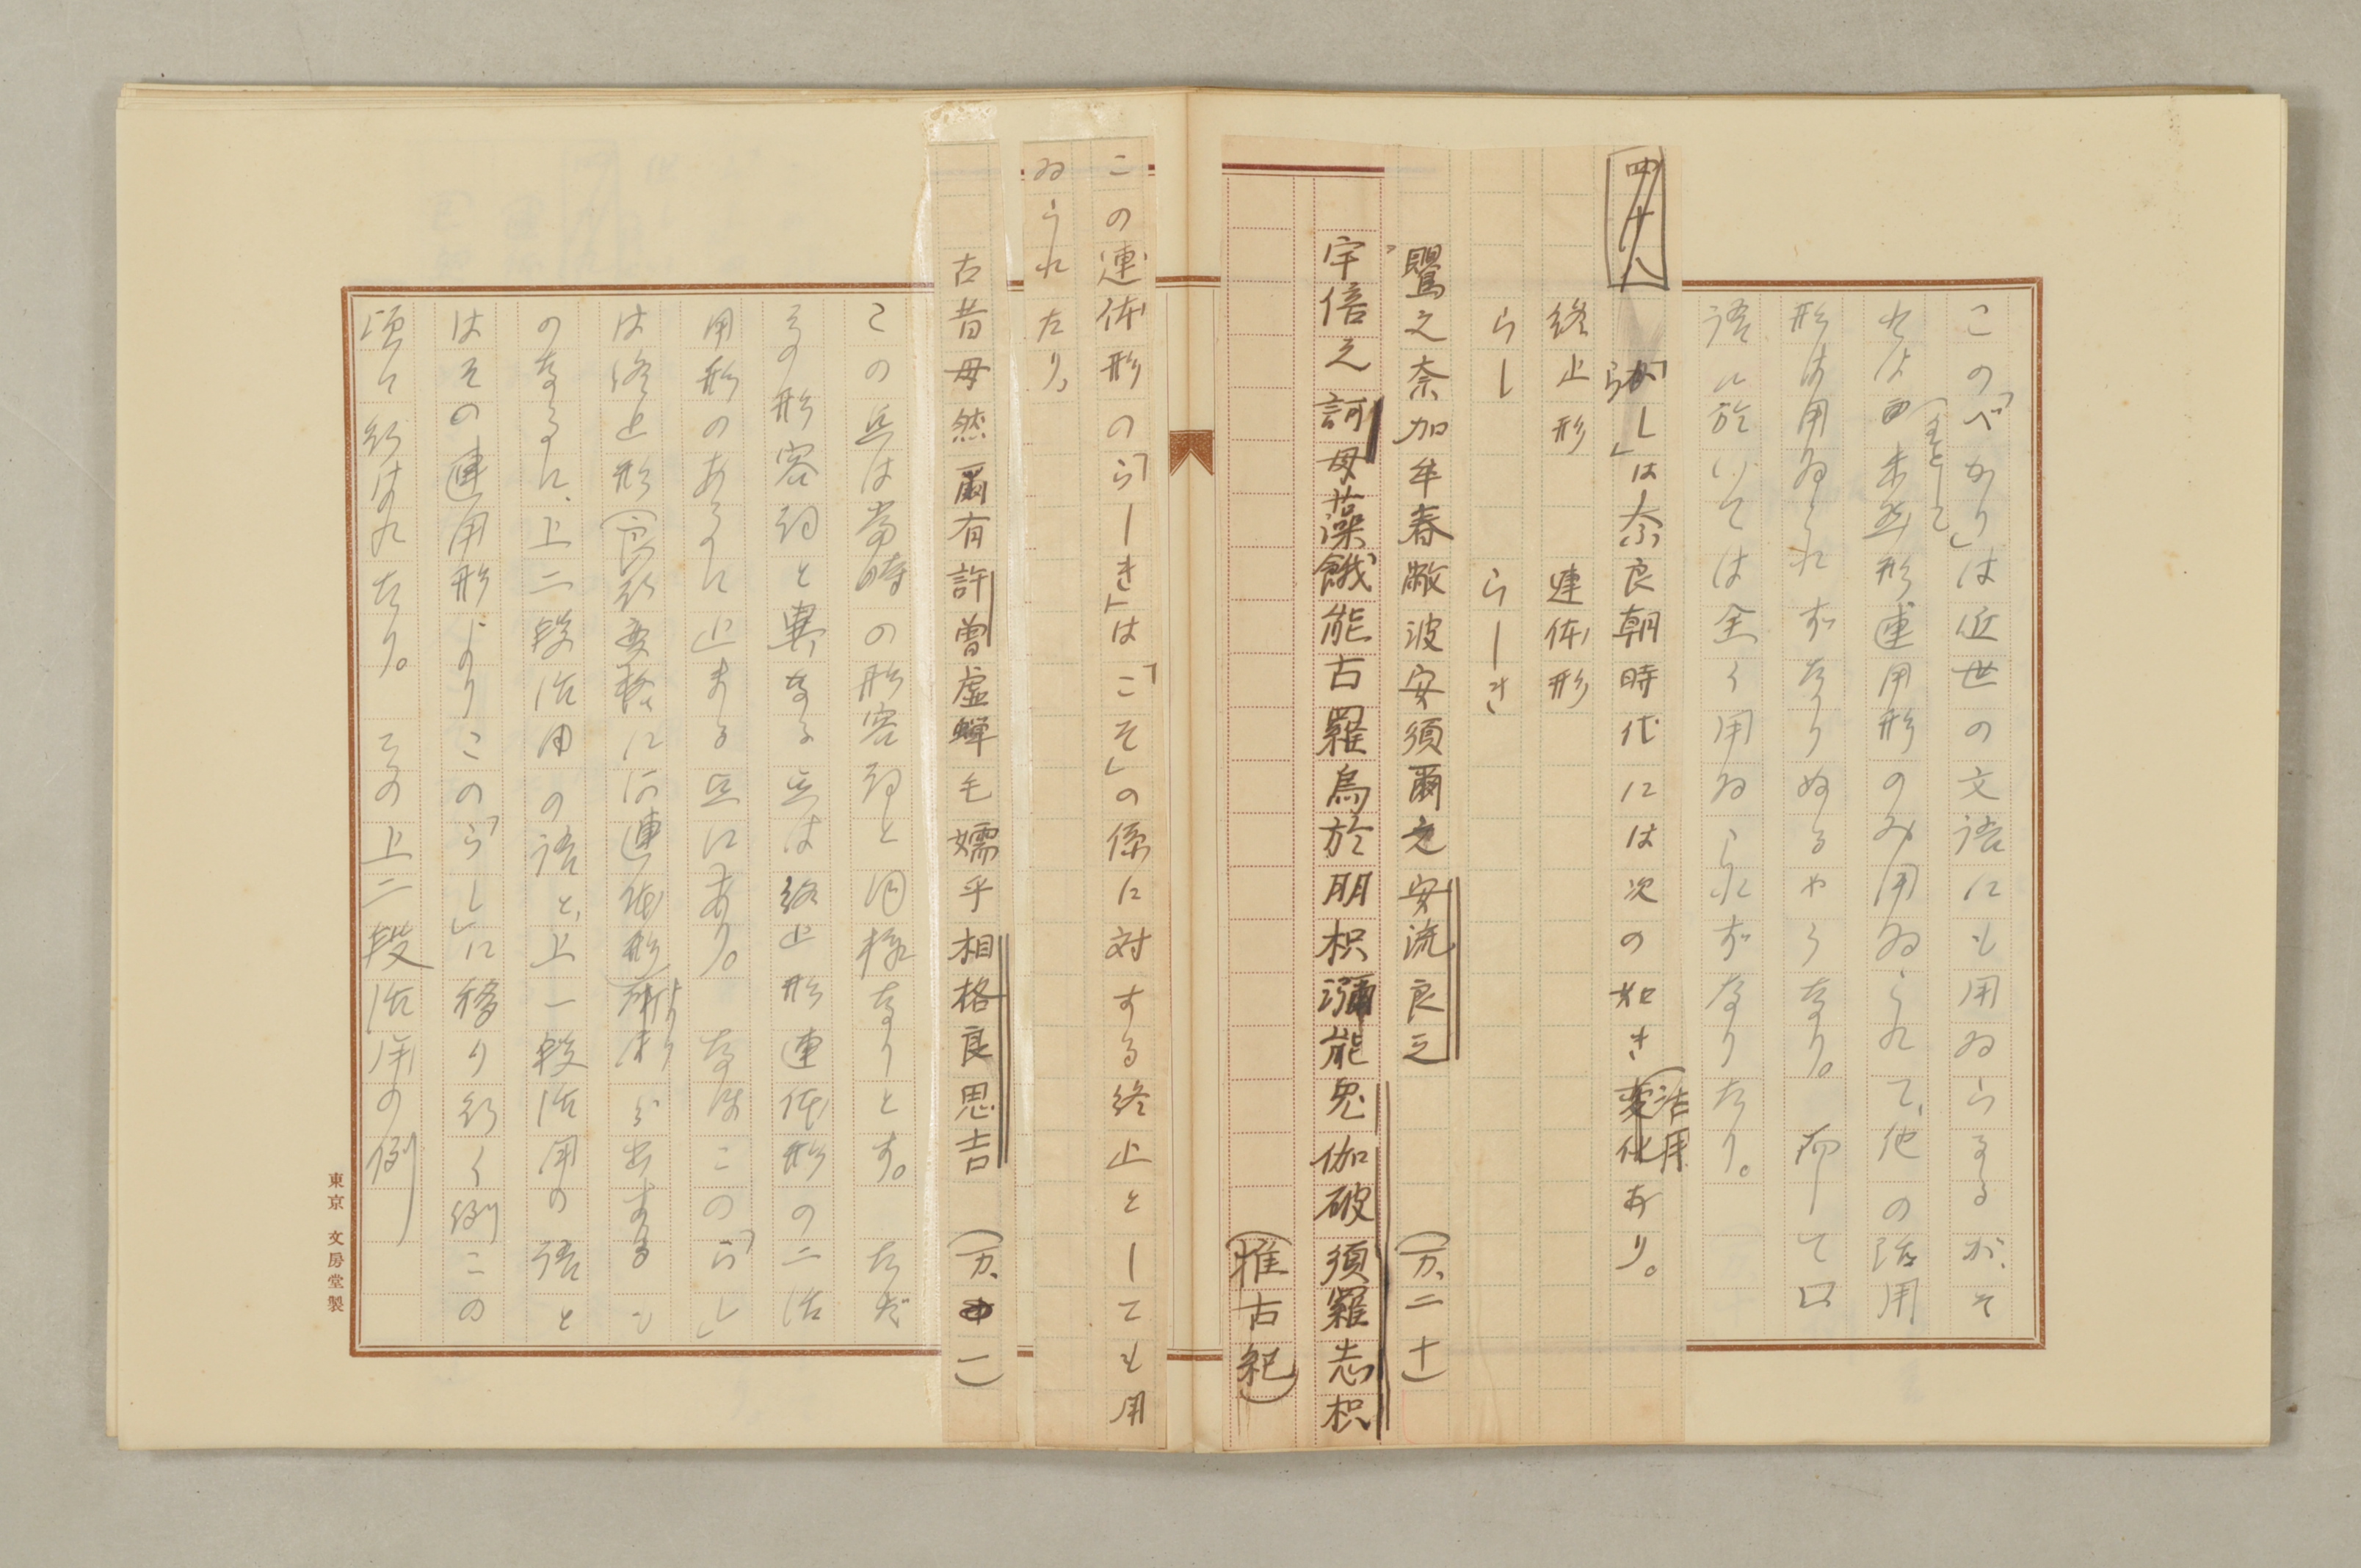 この「べかり」は近世の文語にも用ゐらるるが、そ
れは（主として）未然形連用形のみ用ゐられて、他の活用
形は用ゐられずなりぬるやうなり。而して口
語に於いては全く用ゐられずなりたり。
四十八
「らし」は奈良朝時代には次の如き活用あり。
終止形　連体形
らし　らしき
鸎之奈加牟春敝波安須爾之安流良之（万、二十）
宇倍之訶母蘓餓能古羅烏於朋枳瀰能兎伽破須羅志枳
（推古紀）
この連体形の「らしき」は「こそ」の係に対する終止としても用
ゐられたり。
古昔母然爾有許曽虚蝉毛嬬乎相格良思吉（万、一）
この点は当時の形容詞と同様なりとす。ただ
その形容詞と異なる点は終止形連体形の二活
用形のあるに止まる点にあり。なほこの「らし」
は終止形（良行変格には連体形）より
のなるに、上二段活用の語と、上一段活用の語と
はその連用形よりこの「らし」に移り行く例この
頃に行はれたり。その上二段活用の例
東京　文房堂製